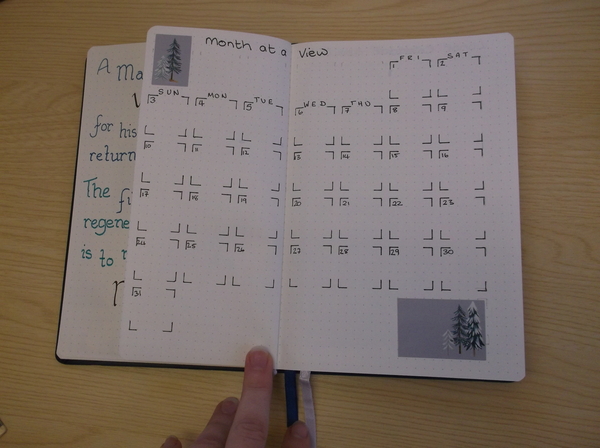 Month at a View
1 FRI 2 SAT
3 SUN 4 MON 5 TUE 6 WED 7 THU 8 9
10 11 12 13 14 15 16
17 18 19 20 21 22 23
24 25 26 27 28 29 30
31
A Ma
for his
return
The fi
regene
is to r